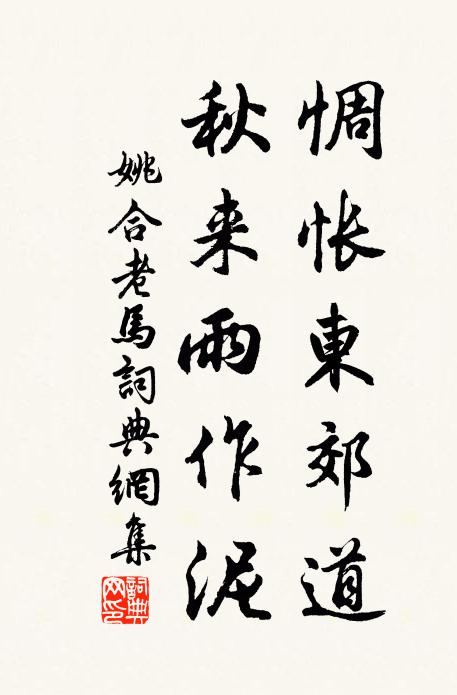 惆悵東郊道
秋来雨作泥
姚合老馬詞典網集
詞典網印